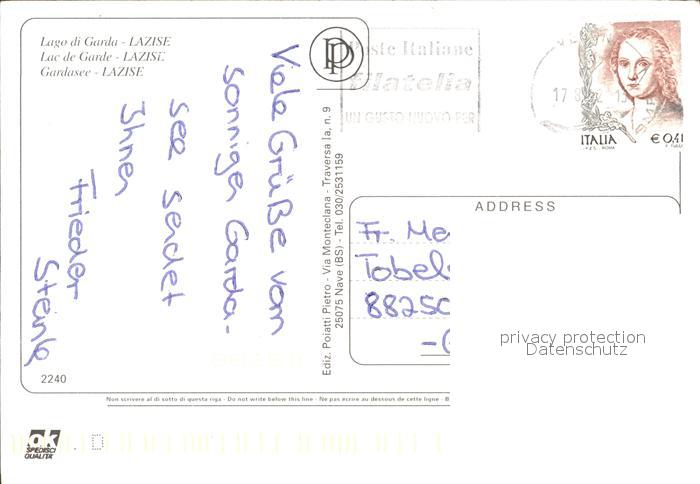 Lago di Garda - LAZISE
Lac de Garde - LAZISE
Gardasee - LAZISE
Viele Grüße vom
sonnigen Garda-
see sendet
Ihnen
Frieder
Steinle
2240
Ediz. Poiatti Pietro - Via Monteclana - Traversa Ia, n. 9
25075 Nave (BS) - Tel. 030/2531159
PP
Poste Italiane
filatelia
UN GUSTO NUOVO PER
17 8
13
ITALIA
€ 0,41
I.P.Z.S. - ROMA
ADDRESS
Fr. Me
Tobel
88250
privacy protection
Datenschutz
Non scrivere al di sotto di questa riga - Do not write below this line - Ne pas écrire au dessous de cette ligne - B
ok
SPEDISCI
QUALITÀ